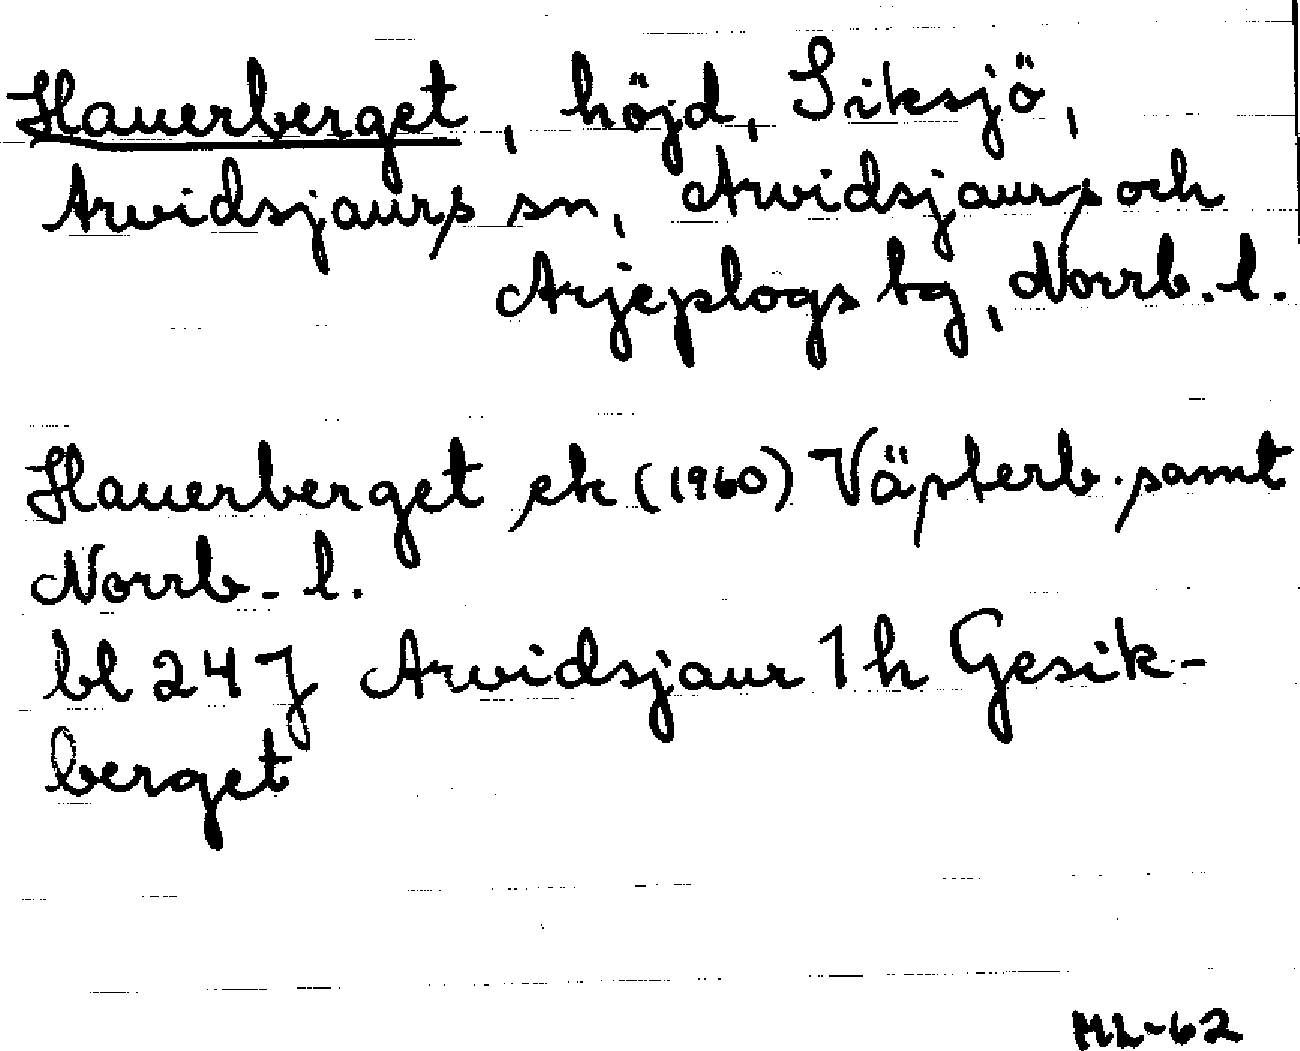 Hauerberget, höjd, Siksjö,
Arvidsjaurs sn, Arvidsjaurs och
Arjeplogs tg, Norrb. l.
Hauerberget ek (1960) Västerb. samt
Norrb. l.
bl 24 J Arvidsjaur 1h Gesik-
berget
ML-62